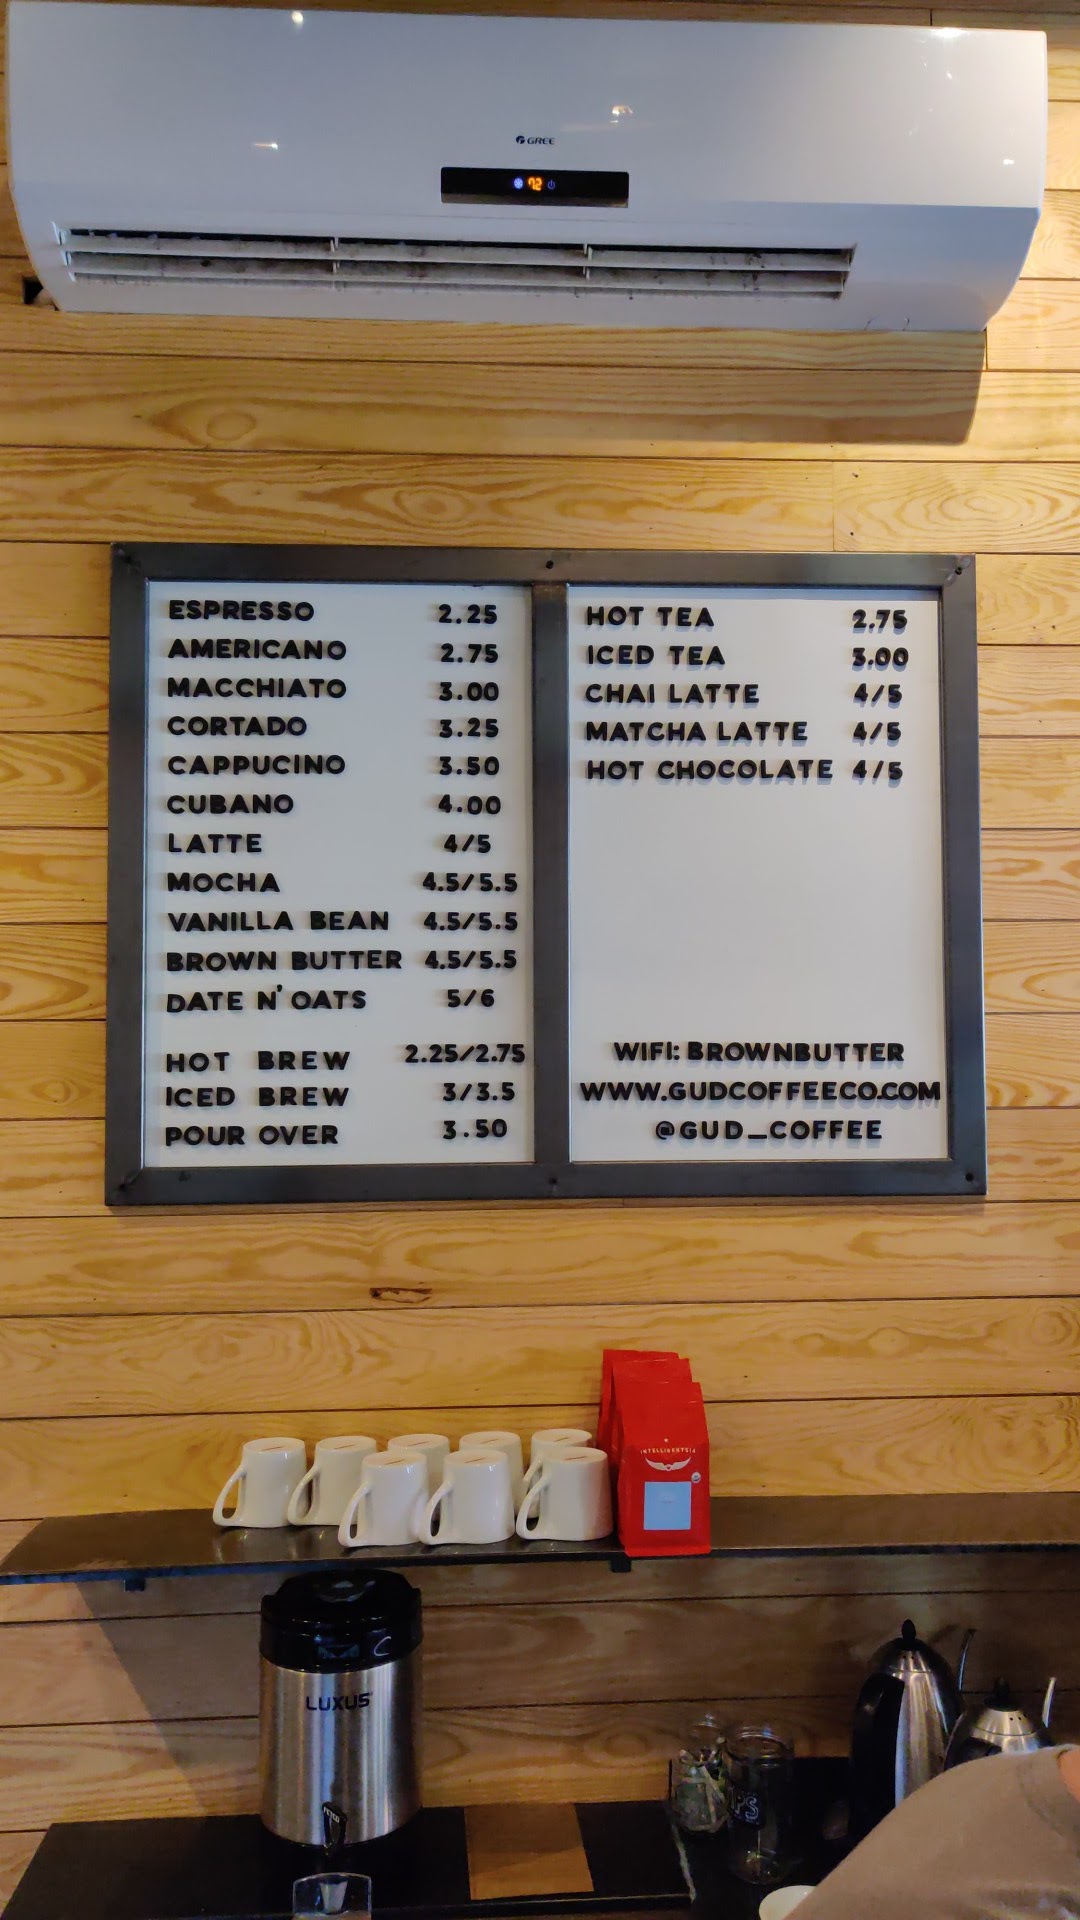 GREE
72
ESPRESSO 2.25
AMERICANO 2.75
MACCHIATO 3.00
CORTADO 3.25
CAPPUCINO 3.50
CUBANO 4.00
LATTE 4/5
MOCHA 4.5/5.5
VANILLA BEAN 4.5/5.5
BROWN BUTTER 4.5/5.5
DATE N' OATS 5/6
HOT BREW 2.25/2.75
ICED BREW 3/3.5
POUR OVER 3.50
HOT TEA 2.75
ICED TEA 3.00
CHAI LATTE 4/5
MATCHA LATTE 4/5
HOT CHOCOLATE 4/5
WIFI: BROWNBUTTER
WWW.GUDCOFFEECO.COM
@GUD_COFFEE
INTELLIGENTSIA
LUXUS
FETCO